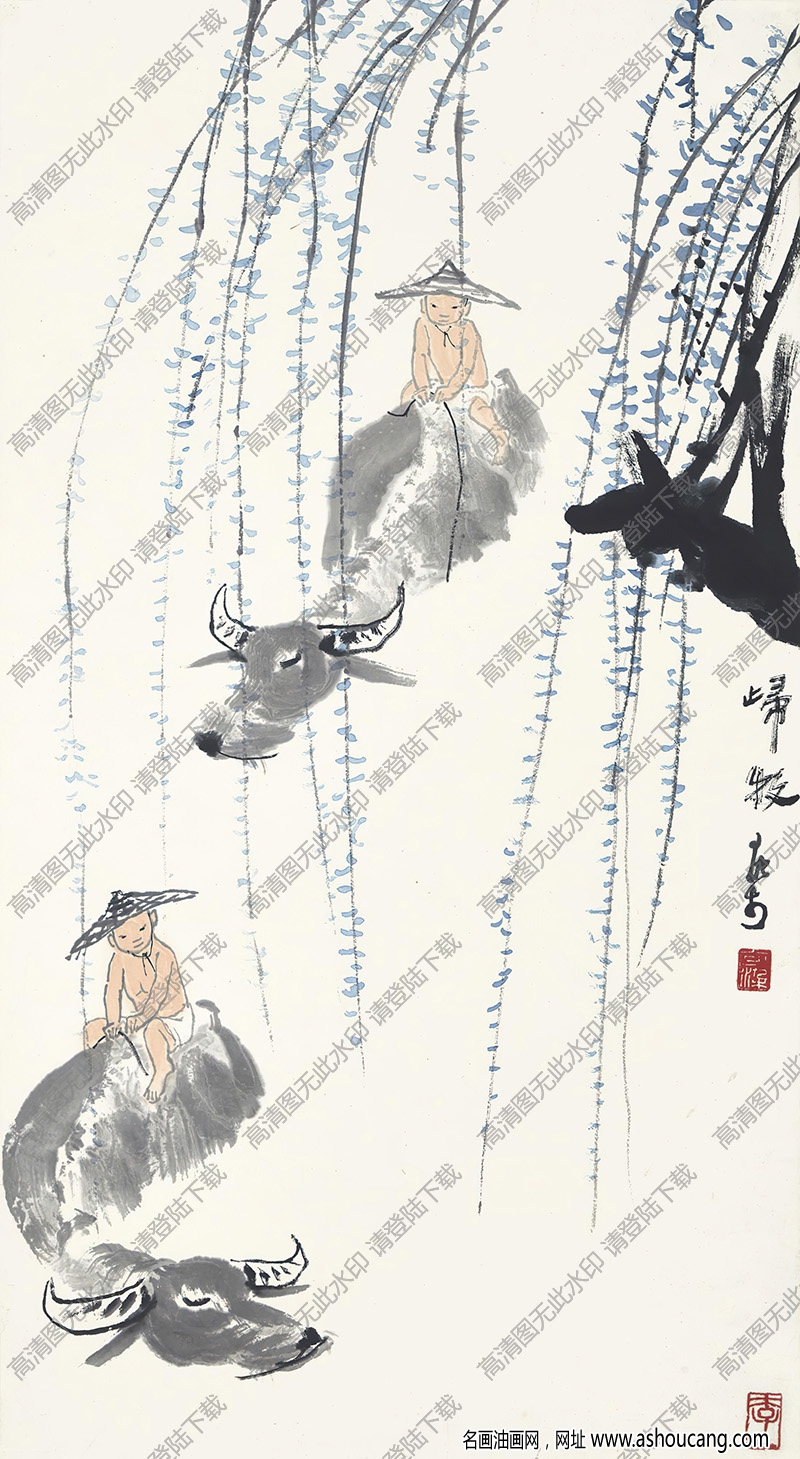 高清图无此水印 请登陆下载
歸牧
可染
名画油画网，网址 www.ashoucang.com